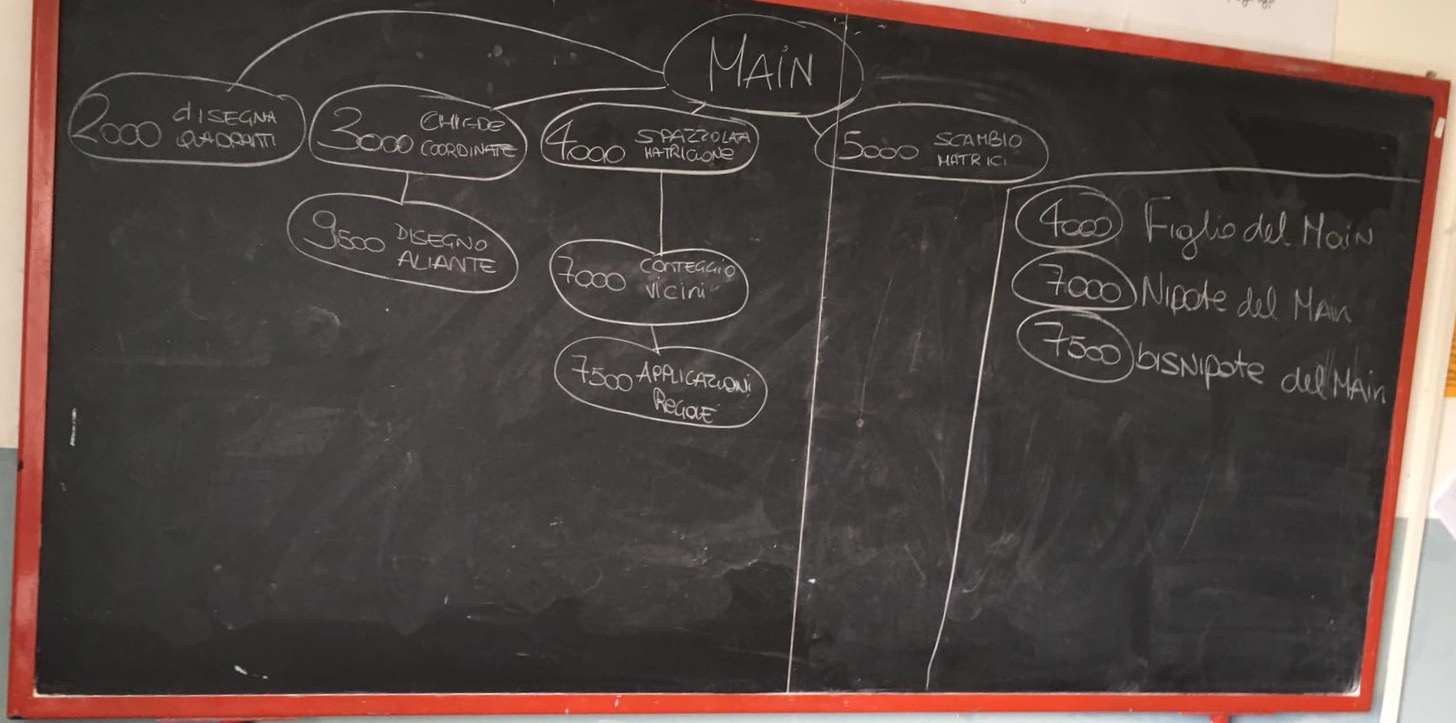 MAiN
2000 diSEGNA
QUADRANTI
3000 CHIEDE
COORDINATE
4000 SPAZZOLATA
MATRICIONE
5000 SCAMBIO
MATRICI
9500 DISEGNO
ALIANTE
7000 CONTEGGIO
Vicini
7500 APPLICAZIONi
REGOLE
4000 Figlio del MaiN
7000 Nipote del MAin
7500 bisNipote del MAin